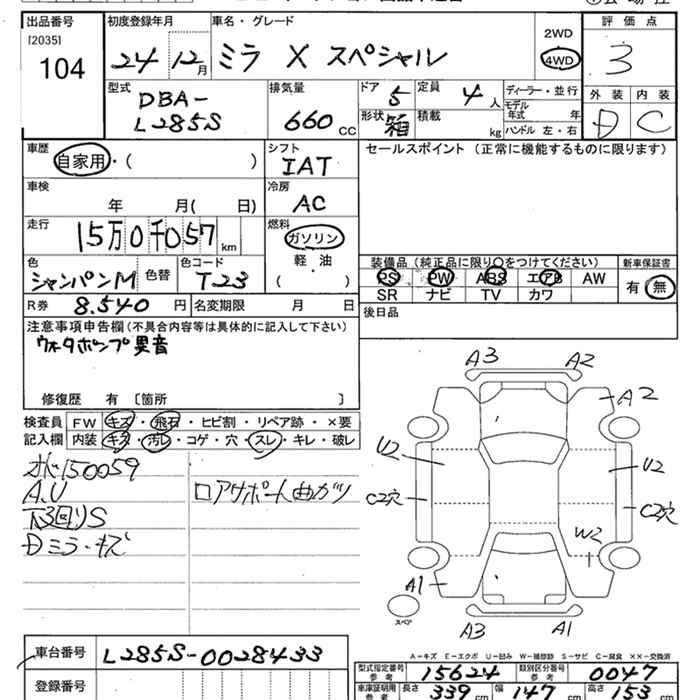 出品番号 初度登録年月 車名・グレード 評価点
[2035] 104 24年12月 ミラ X スペシャル 2WD 4WD 3
型式 DBA-L285S 排気量 660cc ドア 5 定員 4人 形状 箱 積載 kg
ディーラー・並行 モデル年式 年 ハンドル 左・右
外装 D 内装 C
車歴 自家用・( )
シフト IAT
セールスポイント (正常に機能するものに限ります)
車検 年 月( 日)
冷房 AC
走行 15万0千057km
燃料 ガソリン 軽・油 ( )
色 シャンパンM 色替 色コード T23
装備品 (純正品に限り〇をつけてください) 新車保証書
PS PW ABS エアB AW 有 無
SR ナビ TV カワ
R券 8.540円 名変期限 月 日
後日品
注意事項申告欄(不具合内容等は具体的に記入して下さい)
ウォータポンプ異音
修復歴 有 〔箇所 〕
検査員 FW キズ・飛石・ヒビ割・リペア跡・×要
記入欄 内装 キズ・汚レ・コゲ・穴・スレ・キレ・破レ
水I50059
A.U
下回りS
Dミラーキズ
ロアサポート曲ガリ
A3 A2
A2
U2 U2
C2穴 C2穴
W2
A1
スペア
A3 A1
A-キズ E-エクボ U-凹み W-補修跡 S-サビ C-腐食 ××-交換済
車台番号 L285S-0028433
登録番号
型式指定番号 参考 15624 類別区分番号 参考 0047
車庫証明用 参考 長さ 339 幅 147 cm 高さ 153 cm